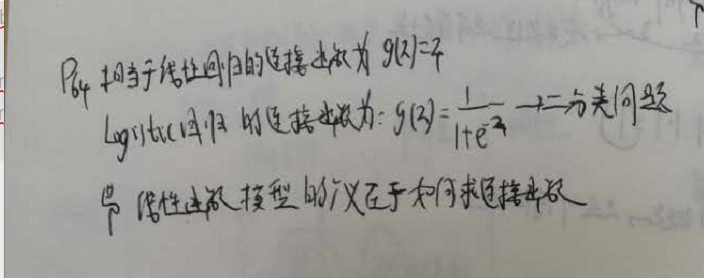 P64 相当于线性回归的连接函数为 g(z)=z
Logistic回归 的连接函数为: g(z)=1/(1+e^-z) → 二分类问题
即 线性函数模型的广义在于如何求连接函数